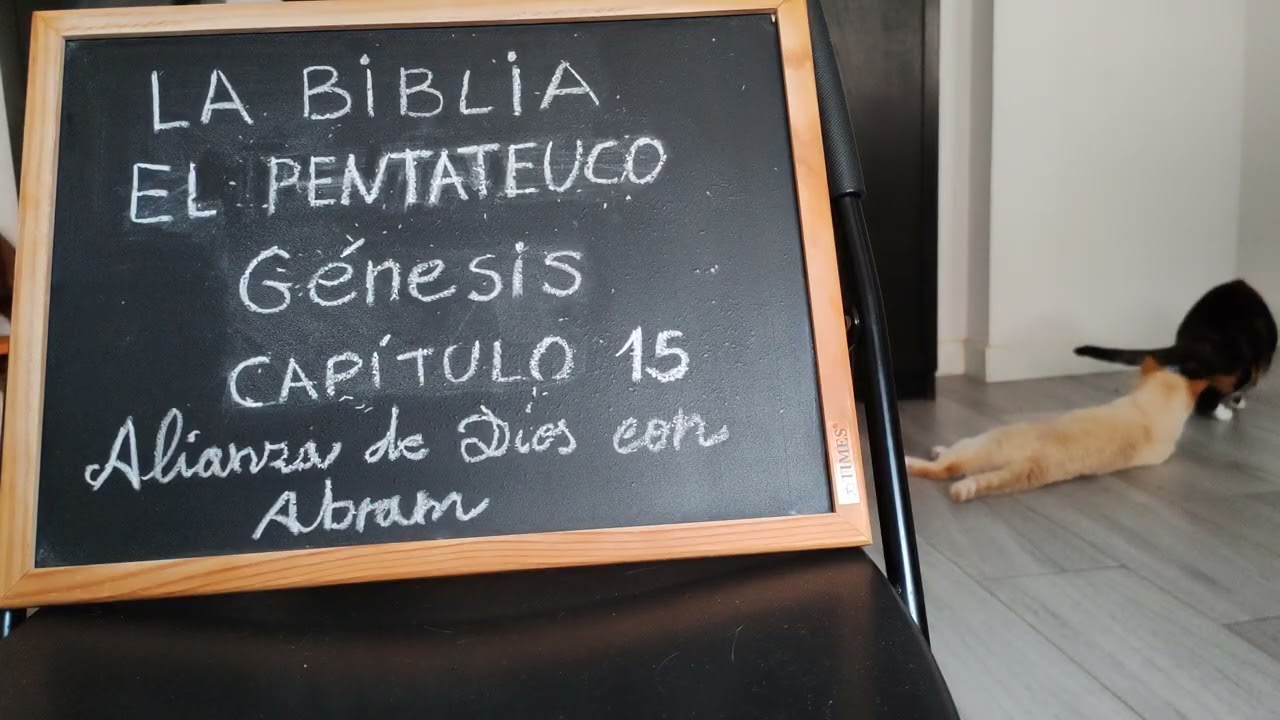 LA BiBLiA
EL PENTATEUCO
Génesis
CAPÍTULO 15
Alianza de Dios con
Abram
TIMES